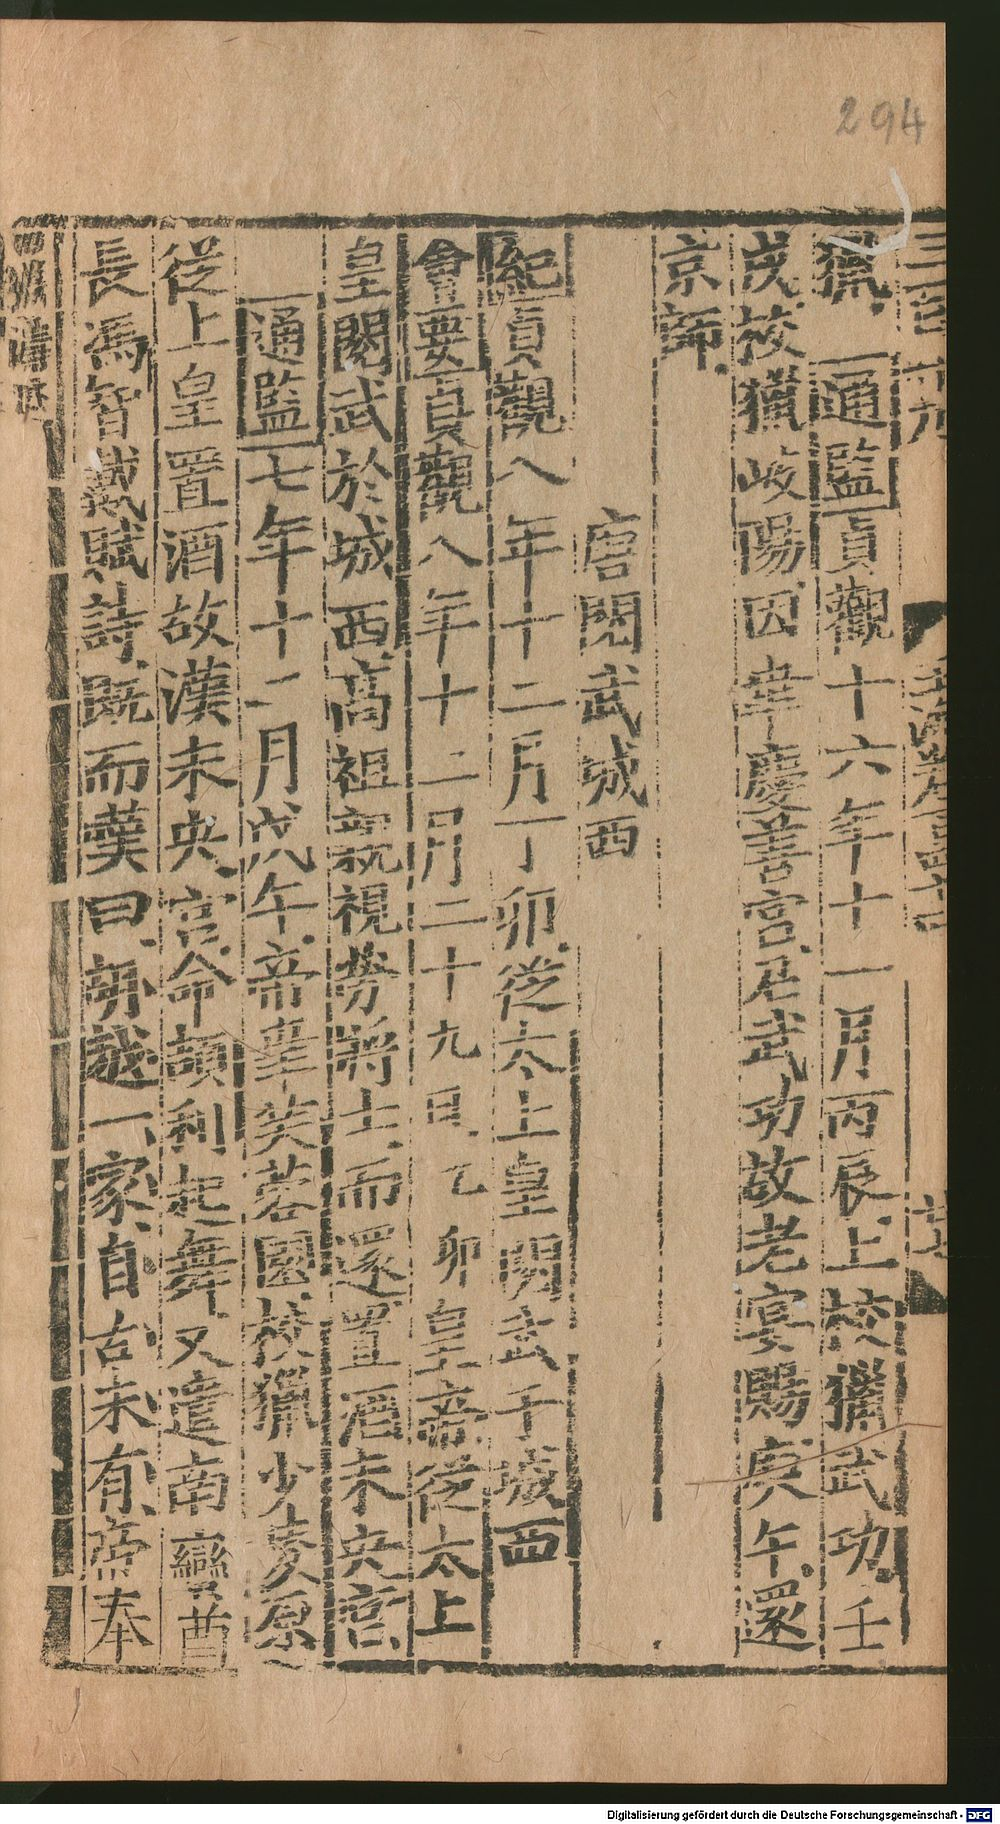 294
獵 通監貞觀十六年十一月丙辰上校獵武功壬
戌校獵岐陽因幸慶善宮召武功故老宴賜庚午還
京師
唐閱武城西
紀貞觀八年十二月丁卯從太上皇閱武于城西
會要貞觀八年十二月二十九日乙卯皇帝從太上
皇閱武於城西高祖親視勞將士而還置酒未央宮
通監七年十二月戊午帝幸芙蓉園校獵少陵原
從上皇置酒故漢未央宮命頡利起舞又遣南蠻酋
長馮智戴賦詩既而歎曰胡越一家自古未有帝奉
Digitalisierung gefördert durch die Deutsche Forschungsgemeinschaft - DFG